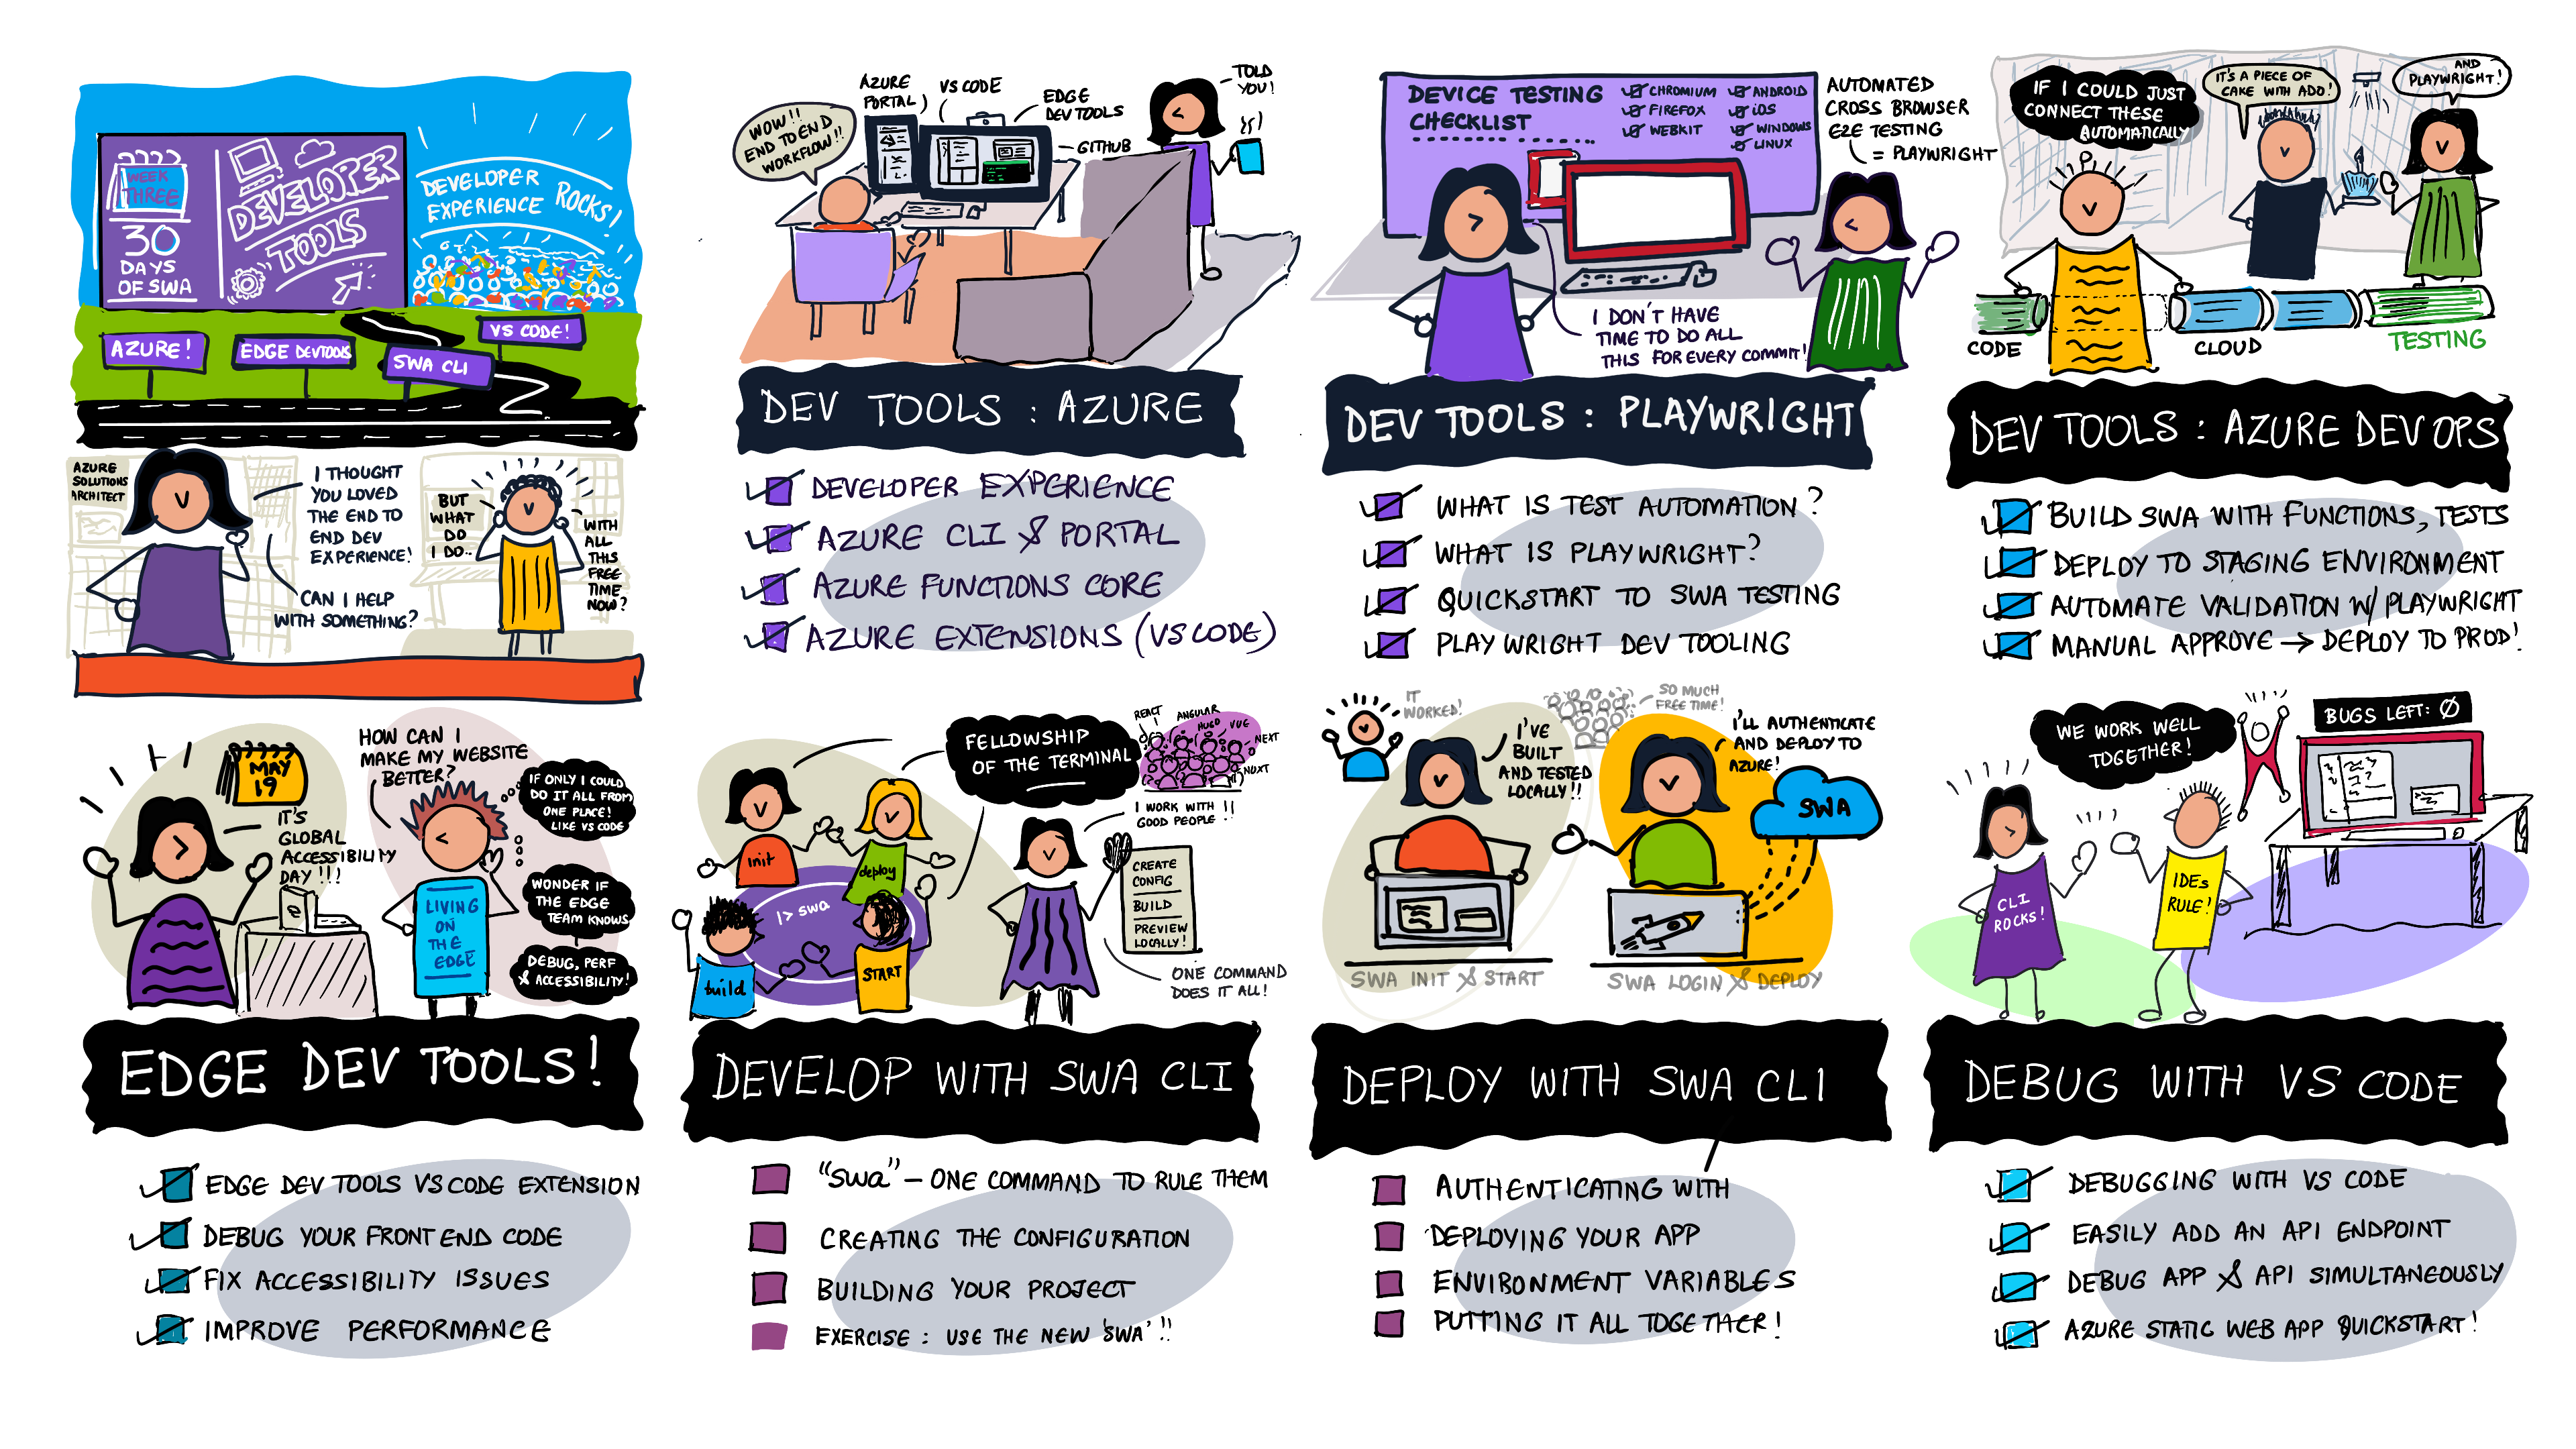 WEEK
THREE
30
DAYS
OF SWA
DEVELOPER
TOOLS
DEVELOPER
EXPERIENCE ROCKS!
AZURE!
EDGE DEVTOOLS
SWA CLI
VS CODE!
AZURE
SOLUTIONS
ARCHITECT
I THOUGHT
YOU LOVED
THE END TO
END DEV
EXPERIENCE!
CAN I HELP
WITH SOMETHING?
BUT
WHAT
DO
I DO..
WITH
ALL
THIS
FREE
TIME
NOW?
WOW!!
END TO END
WORKFLOW!!
AZURE
PORTAL
VS CODE
EDGE
DEV TOOLS
GITHUB
TOLD
YOU!
DEV TOOLS : AZURE
DEVELOPER EXPERIENCE
AZURE CLI & PORTAL
AZURE FUNCTIONS CORE
AZURE EXTENSIONS (VS CODE)
DEVICE TESTING
CHECKLIST
CHROMIUM
FIREFOX
WEBKIT
ANDROID
iOS
WINDOWS
LINUX
AUTOMATED
CROSS BROWSER
E2E TESTING
= PLAYWRIGHT
I DON'T HAVE
TIME TO DO ALL
THIS FOR EVERY COMMIT!
DEV TOOLS : PLAYWRIGHT
WHAT IS TEST AUTOMATION?
WHAT IS PLAYWRIGHT?
QUICKSTART TO SWA TESTING
PLAYWRIGHT DEV TOOLING
IF I COULD JUST
CONNECT THESE
AUTOMATICALLY
IT'S A PIECE OF
CAKE WITH ADO!
AND
PLAYWRIGHT!
CODE
CLOUD
TESTING
DEV TOOLS : AZURE DEVOPS
BUILD SWA WITH FUNCTIONS, TESTS
DEPLOY TO STAGING ENVIRONMENT
AUTOMATE VALIDATION W/ PLAYWRIGHT
MANUAL APPROVE → DEPLOY TO PROD!
MAY
19
IT'S
GLOBAL
ACCESSIBILITY
DAY!!!
HOW CAN I
MAKE MY WEBSITE
BETTER?
IF ONLY I COULD
DO IT ALL FROM
ONE PLACE!
LIKE VS CODE
WONDER IF
THE EDGE
TEAM KNOWS
DEBUG, PERF
& ACCESSIBILITY!
e
LIVING
ON
THE
EDGE
EDGE DEV TOOLS!
EDGE DEV TOOLS VS CODE EXTENSION
DEBUG YOUR FRONT END CODE
FIX ACCESSIBILITY ISSUES
IMPROVE PERFORMANCE
FELLOWSHIP
OF THE TERMINAL
REACT
ANGULAR
HUGO
VUE
NEXT
NUXT
I WORK WITH !!
GOOD PEOPLE
init
deploy
build
START
|> swa
CREATE
CONFIG
BUILD
PREVIEW
LOCALLY!
ONE COMMAND
DOES IT ALL!
DEVELOP WITH SWA CLI
"swa" – ONE COMMAND TO RULE THEM
CREATING THE CONFIGURATION
BUILDING YOUR PROJECT
EXERCISE : USE THE NEW 'SWA' !!
IT
WORKED!
I'VE
BUILT
AND TESTED
LOCALLY!!
SO MUCH
FREE TIME!
I'LL AUTHENTICATE
AND DEPLOY TO
AZURE!
SWA
SWA INIT & START
SWA LOGIN & DEPLOY
DEPLOY WITH SWA CLI
AUTHENTICATING WITH
DEPLOYING YOUR APP
ENVIRONMENT VARIABLES
PUTTING IT ALL TOGETHER!
WE WORK WELL
TOGETHER!
BUGS LEFT: 0
CLI
ROCKS!
IDEs
RULE!
DEBUG WITH VS CODE
DEBUGGING WITH VS CODE
EASILY ADD AN API ENDPOINT
DEBUG APP & API SIMULTANEOUSLY
AZURE STATIC WEB APP QUICKSTART!